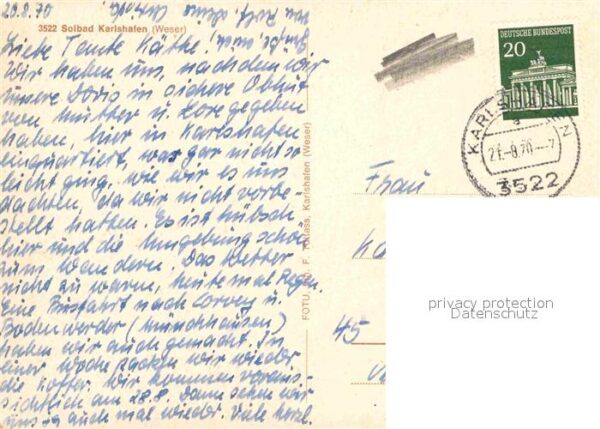 20.8.70
3522 Solbad Karlshafen (Weser)
Liebe Tante Käthe!
Wir haben uns, nachdem wir
unsere Doris in sichere Obhut
von Mutter u. Lore gegeben
haben, hier in Karlshafen
einquartiert, was gar nicht so
leicht ging, wie wir es uns
dachten, da wir nicht vorbe-
stellt hatten. Es ist hübsch
hier und die Umgebung schön
zum Wandern. Das Wetter
nicht zu warm, heute mal Regen.
Eine Busfahrt nach Corvey u.
Bodenwerder (Münchhausen)
haben wir auch gemacht. In
einer Woche packen wir wieder
die Koffer. Wir kommen voraus-
sichtlich am 28.8. Dann sehen wir
uns ja auch mal wieder. Viele herzl.
Grüße
von Rolf
Karlshafen (Weser)
DEUTSCHE BUNDESPOST
20
21.-8.70.-7
3522
Frau
45
privacy protection
Datenschutz